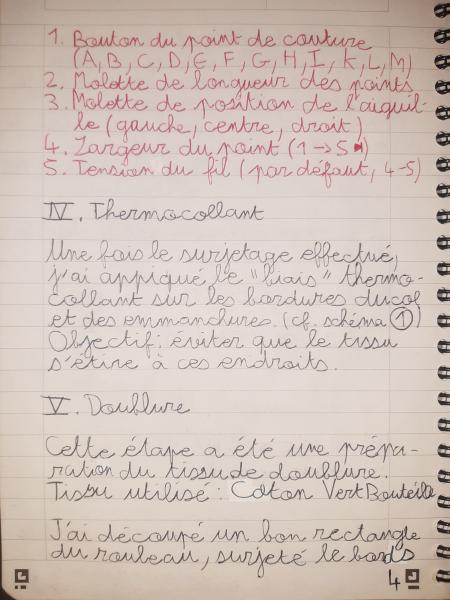 1. Bouton du point de couture
(A, B, C, D, E, F, G, H, I, K, L, M)
2. Molette de longueur des points
3. Molette de position de l'aiguil-
le (gauche, centre, droit)
4. Largeur du point (1 → 5)
5. Tension du fil (par défaut, 4-5)
IV. Thermocollant
Une fois le surjetage effectué,
j'ai appliqué le "biais" thermo-
collant sur les bordures du col
et des emmanchures. (cf. schéma 1)
Objectif: éviter que le tissu
s'étire à ces endroits.
V. Doublure
Cette étape a été une prépa-
ration du tissu de doublure.
Tissu utilisé: Coton Vert Bouteille
J'ai découpé un bon rectangle
du rouleau, surjeté le bords
4